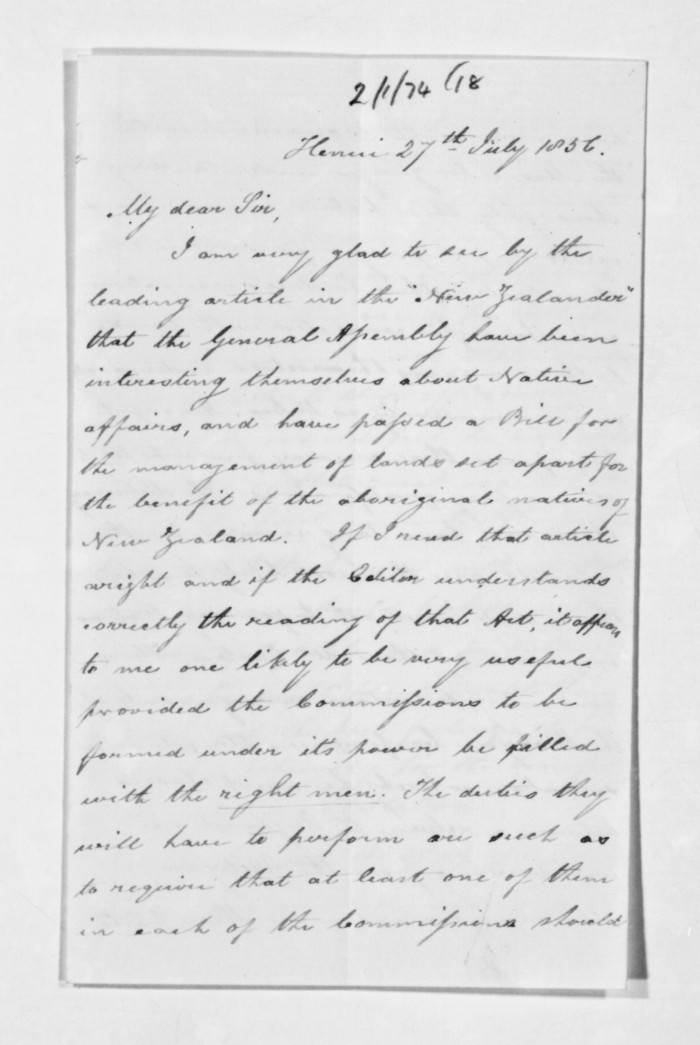 2/1/74 (18
Henui 27th July 1856.
My dear Sir,
I am very glad to see by the
leading article in the "New Zealander"
that the General Assembly have been
interesting themselves about Native
affairs, and have passed a Bill for
the management of lands set apart for
the benefit of the aboriginal natives of
New Zealand. If I read that article
aright and if the Editor understands
correctly the reading of that Act, it appears
to me one likely to be very useful
provided the Commissions to be
formed under its power be filled
with the right men. The duties they
will have to perform are such as
to require that at least one of them
in each of the Commissions should